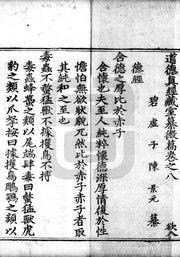 道德真經藏室纂微篇卷之八 欲八
碧虛子陳景元纂
德經
含德之厚比於赤子
含懷也夫至人純粹懷德深厚情復於性
憺怕無欲狀貌兀然比於赤子赤子者取
其純和之至也
毒蟲不螫猛獸不據攫鳥不搏
毒蟲蜂蠆之類以尾端肆毒曰螫猛獸虎
豹之類以爪拏按曰據攫鳥鵰鶚之類以